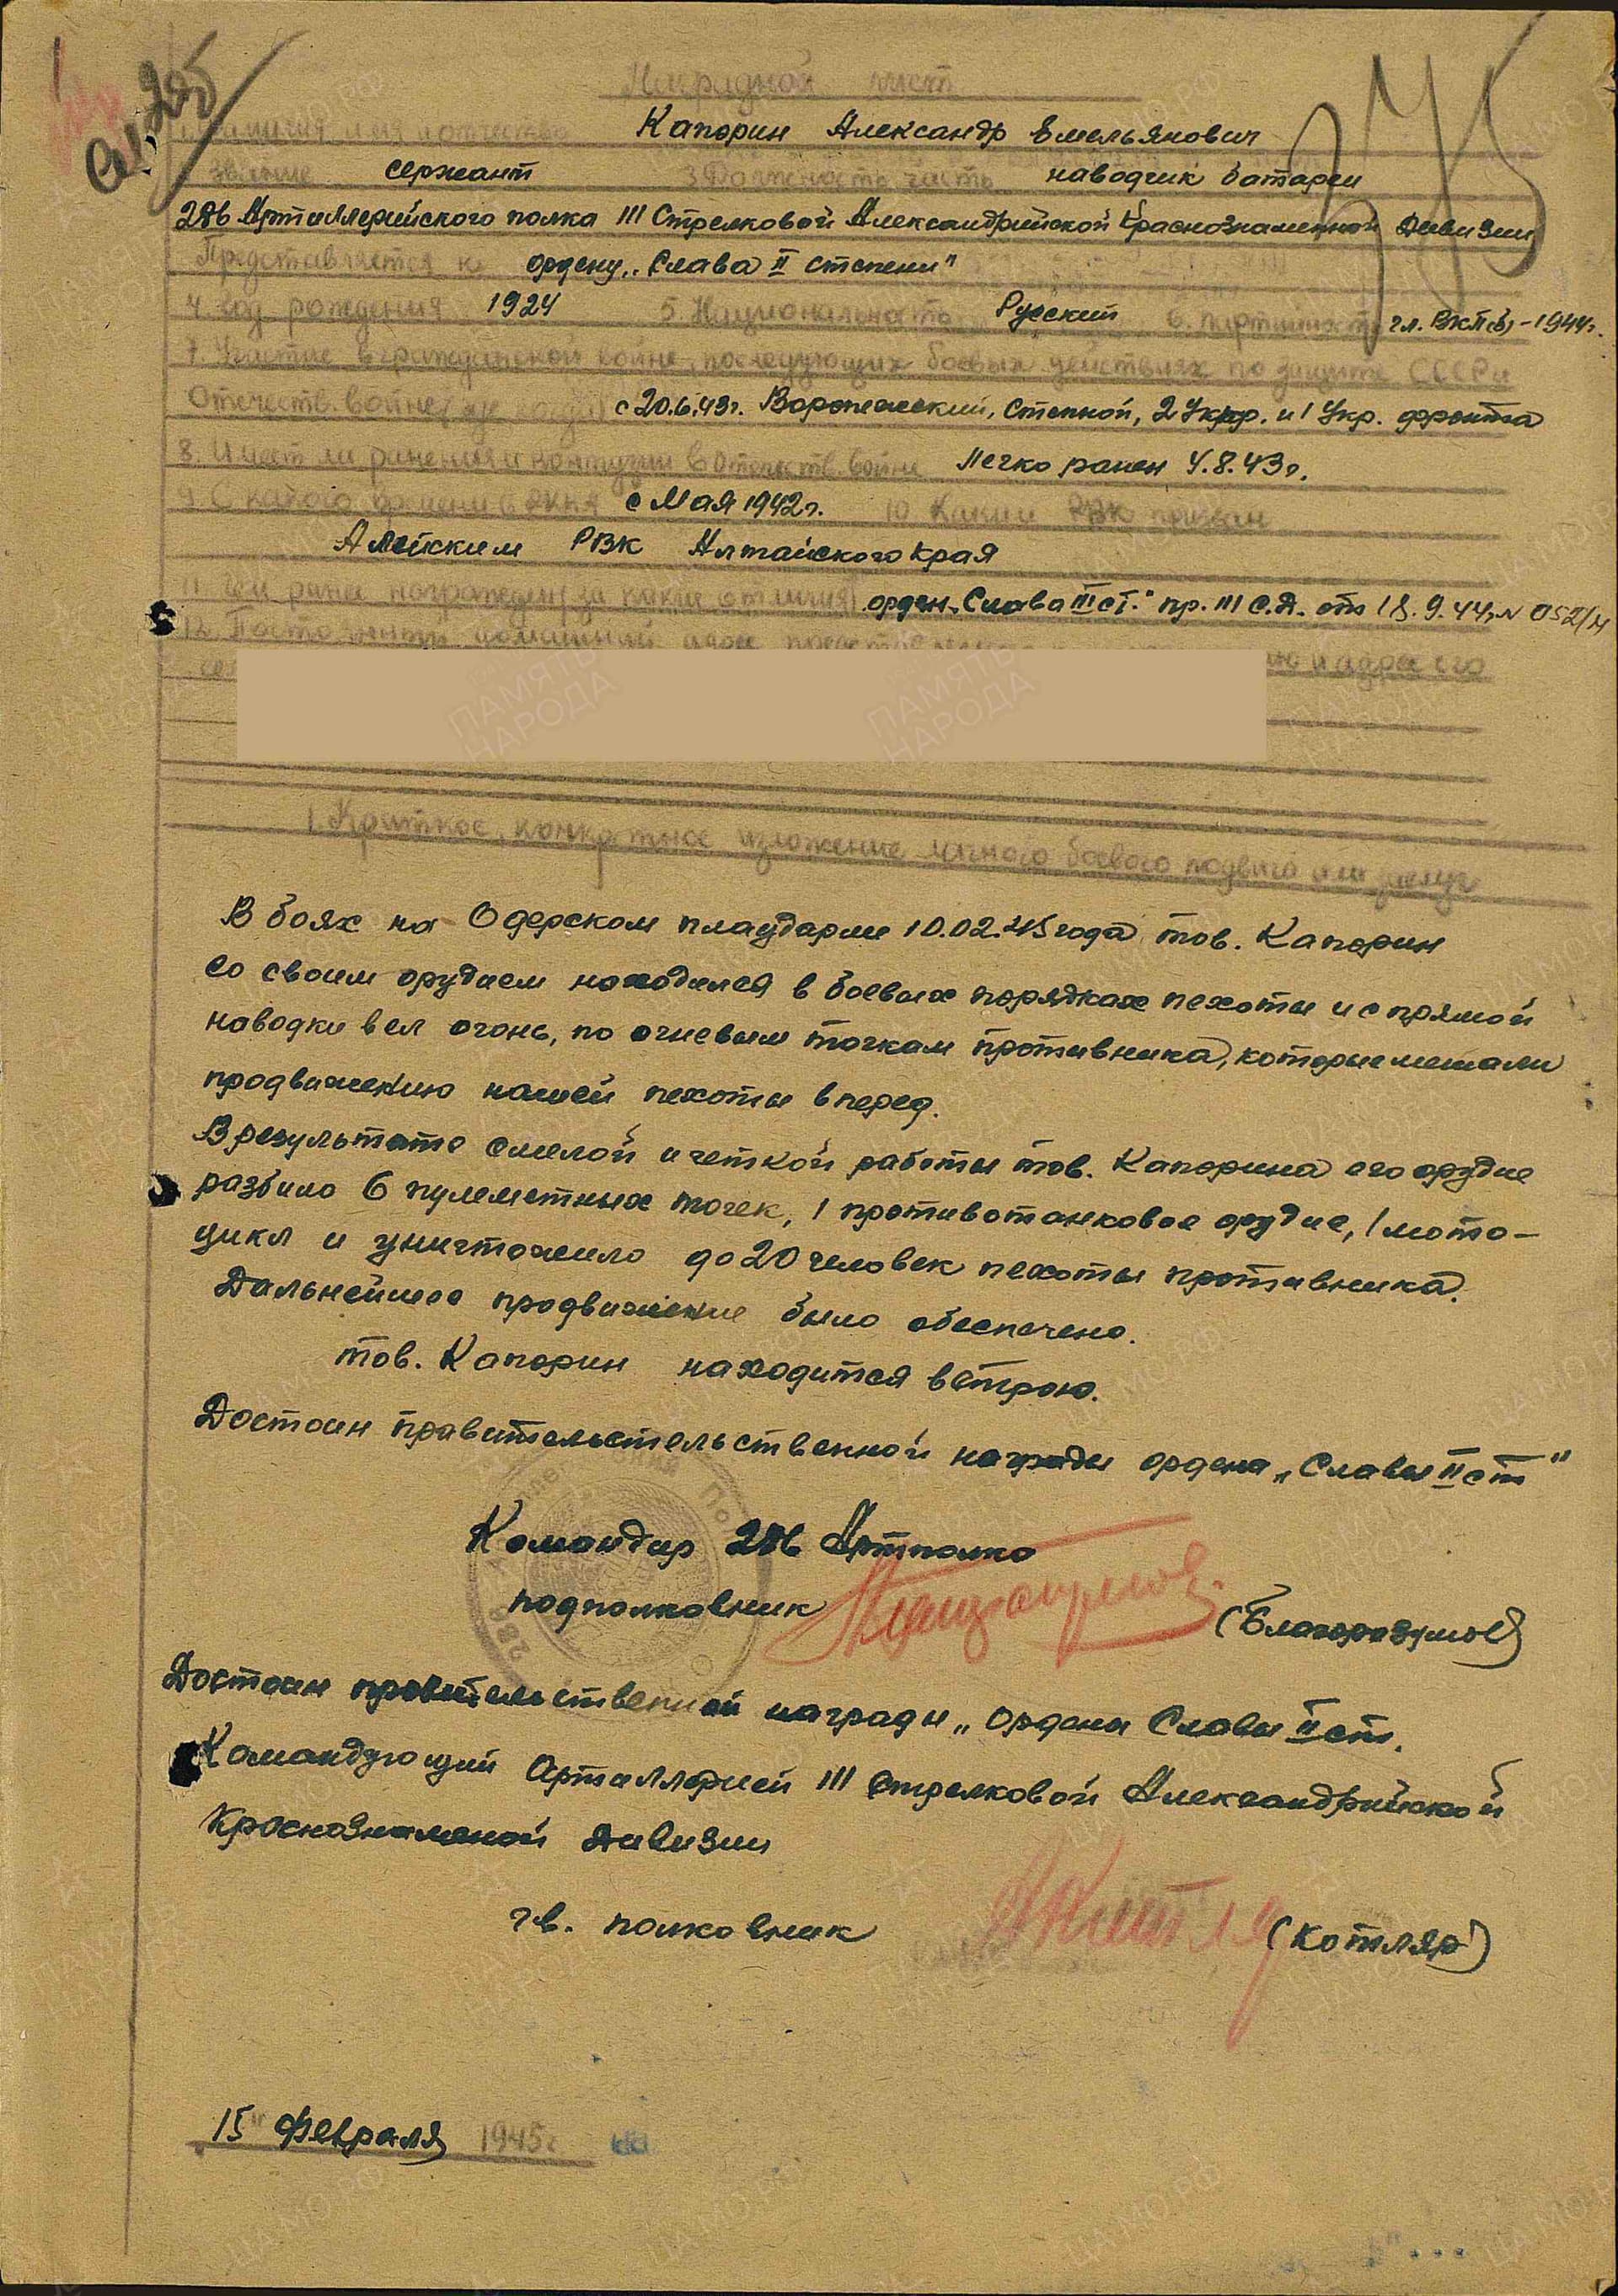 Наградной лист
1. Фамилия, имя и отчество Капорин Александр Емельянович
звание сержант 3 Должность, часть наводчик батареи
286 Артиллерийского полка 111 Стрелковой Александрийской Краснознаменной Дивизии
Представляется к ордену „Слава II степени"
4. год рождения 1924 5. Национальность Русский 6. партийность чл. ВКП(б) - 1944г.
7. Участие в гражданской войне, последующих боевых действиях по защите СССР и
Отечеств. войне (где когда) с 20.6.43г. Воронежский, Степной, 2 Укр. и 1 Укр. фронта
8. Имеет ли ранения и контузии в Отечеств. войне Легко ранен 4.8.43г.
9. С какого времени в РККА с Мая 1942г. 10 Каким РВК призван
Алейским РВК Алтайского края
11 чем ранее награжден (за какие отличия) орден „Слава III ст." пр. 111 С.Д. от 18.9.44г. N 052/н
12. Постоянный домашний адрес и адрес его
ПАМЯТЬ НАРОДА ПАМЯТЬ НАРОДА
1. Краткое, конкретное изложение личного боевого подвига или заслуг
В боях на Одерском плаударме 10.02.45 года тов. Капорин
со своим орудием находился в боевых порядках пехоты и с прямой
наводки вел огонь, по огневым точкам противника, которые мешали
продвижению нашей пехоты вперед.
В результате смелой и четкой работы тов. Капорина его орудие
разбило 6 пулеметных точек, 1 противотанковое орудие, 1 мото-
цикл и уничтожило до 20 человек пехоты противника.
Дальнейшее продвижение было обеспечено.
тов. Капорин находится в строю.
Достоин правительстельственной награды ордена „Славы II ст"
Командир 286 Артполка
подполковник (Благоразумов)
Достоин правительственной награды „Ордена Славы II ст.
Командующий Артиллерией 111 Стрелковой Александрийской
Краснознаменой Дивизии
гв. полковник (Котляр)
15" Февраля 1945г.